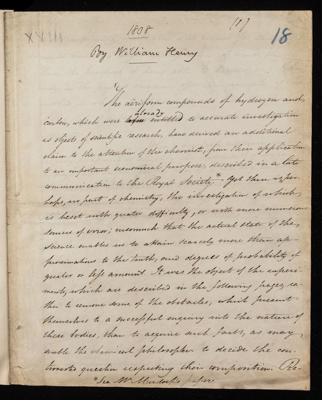 XXIII
1808
(1)
18
By William Henry
The aeriform compounds of hydrogen and
carbon, which were already entitled to accurate investigation
as objects of scientific research, have derived an additional
claim to the attention of the chemist, from their application
to an important economical purpose, described in a late
communication to the Royal Society.* Yet there is per-
haps, no part of chemistry, the investigation of which,
is beset with greater difficulty, or with more numerous
sources of error; insomuch that the actual state of the
science enables us to attain scarcely more than ap-
proximations to the truth, and degrees of probability of
greater or less amount. It was the object of the experi-
ments, which are described in the following pages, ra-
ther to remove some of the obstacles, which present
themselves to a successful inquiry into the nature of
these bodies, than to acquire such facts, as may
enable the chemical philosopher to decide the con-
troverted question respecting their composition. Pre-
* See Mr. Murdoch's paper